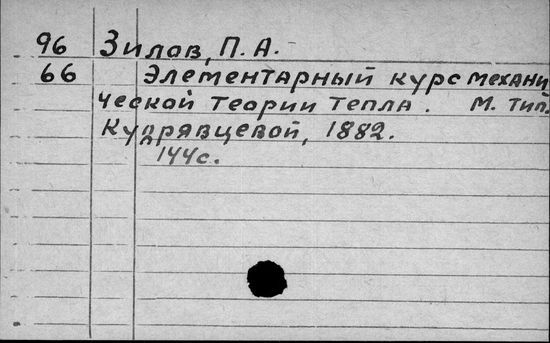 96 Зилов, П. А.
66 Элементарный курс механи
ческой теории тепла. М. Тип.
Кудрявцевой, 1882.
144с.